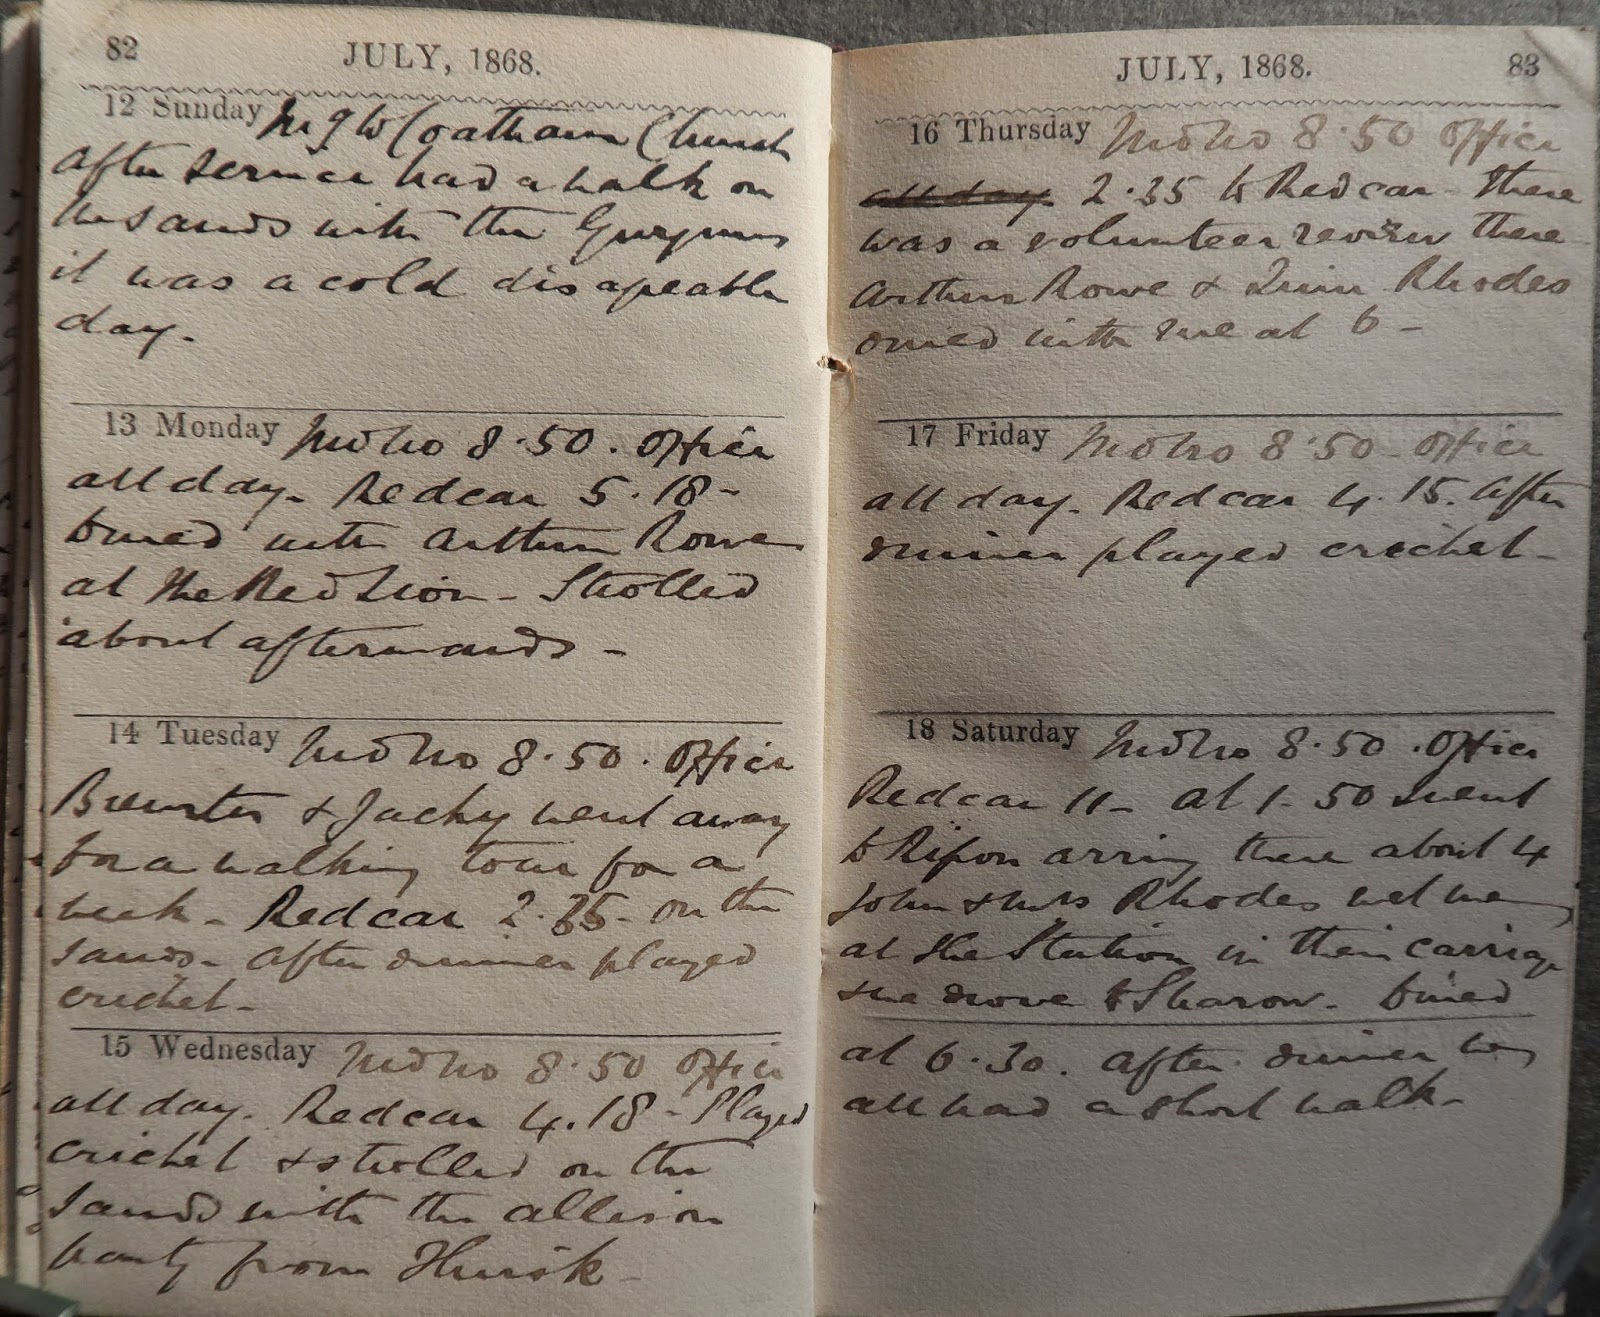 82
JULY, 1868.
12 Sunday M & W Coatham Church
after service had a walk on
the sands with the
it was a cold disagreable
day.
13 Monday Mdbro 8.50. Office
all day. Redcar 5.18-
Dined with Arthur Rowe
at the Red Lion - Strolled
about afterwards -
14 Tuesday Mdbro 8.50. Office
Brewster & Jacky went away
for a walking tour for a
week - Redcar 2.35 - on the
sands - after dinner played
cricket -
15 Wednesday Mdbro 8.50 Office
all day. Redcar 4.18 - Played
cricket & strolled on the
sands with the allison
party from
JULY, 1868.
83
16 Thursday Mdbro 8.50 Office
all day 2.35 to Redcar - there
was a volunteer review there
Arthur Rowe & Rhodes
dined with me at 6 -
17 Friday Mdbro 8.50 - Office
all day. Redcar 4.15. After
dinner played cricket -
18 Saturday Mdbro 8.50. Office
Redcar 11 - at 1.50 went
to Ripon arriving there about 4
John & Mrs Rhodes met me
at the Station in their carriage
& we drove to Sharow. Dined
at 6.30. after dinner we
all had a short walk -